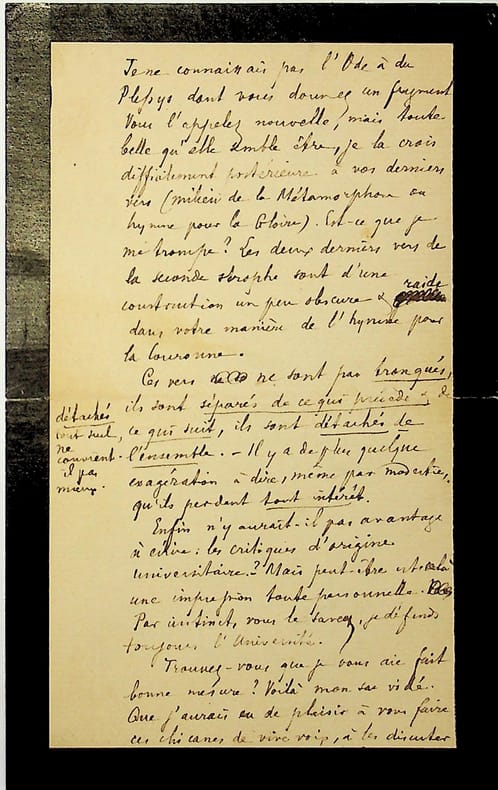 Je ne connaissais pas l'Ode à du
Plessys dont vous donnez un fragment
Vous l'appelez nouvelle, mais toute
belle qu'elle semble être, je la crois
difficilement postérieure à vos derniers
vers (milieu de la Métamorphose ou
hymne pour la Gloire). Est-ce que je
me trompe? Les deux derniers vers de
la seconde strophe sont d'une
construction un peu obscure & raide
dans votre manière de l'hymne pour
la Couronne.
Ces vers ne sont pas tronqués,
ils sont séparés de ce qui précède & de
ce qui suit, ils sont détachés de
l'ensemble. - Il y a de plus quelque
exagération à dire, même par modestie,
qu'ils perdent tout intérêt.
détachés
tout seul,
ne
convient-
il pas
mieux.
Enfin n'y aurait-il pas avantage
à écrire: les critiques d'origine
universitaire? Mais peut-être est-ce là
une impression toute personnelle.
Par instinct, vous le savez, je défends
toujours l'Université.
Trouvez-vous que je vous aie fait
bonne mesure? Voilà mon sac vidé.
Que j'aurais eu de plaisir à vous faire
ces chicanes de vive voix, à les discuter